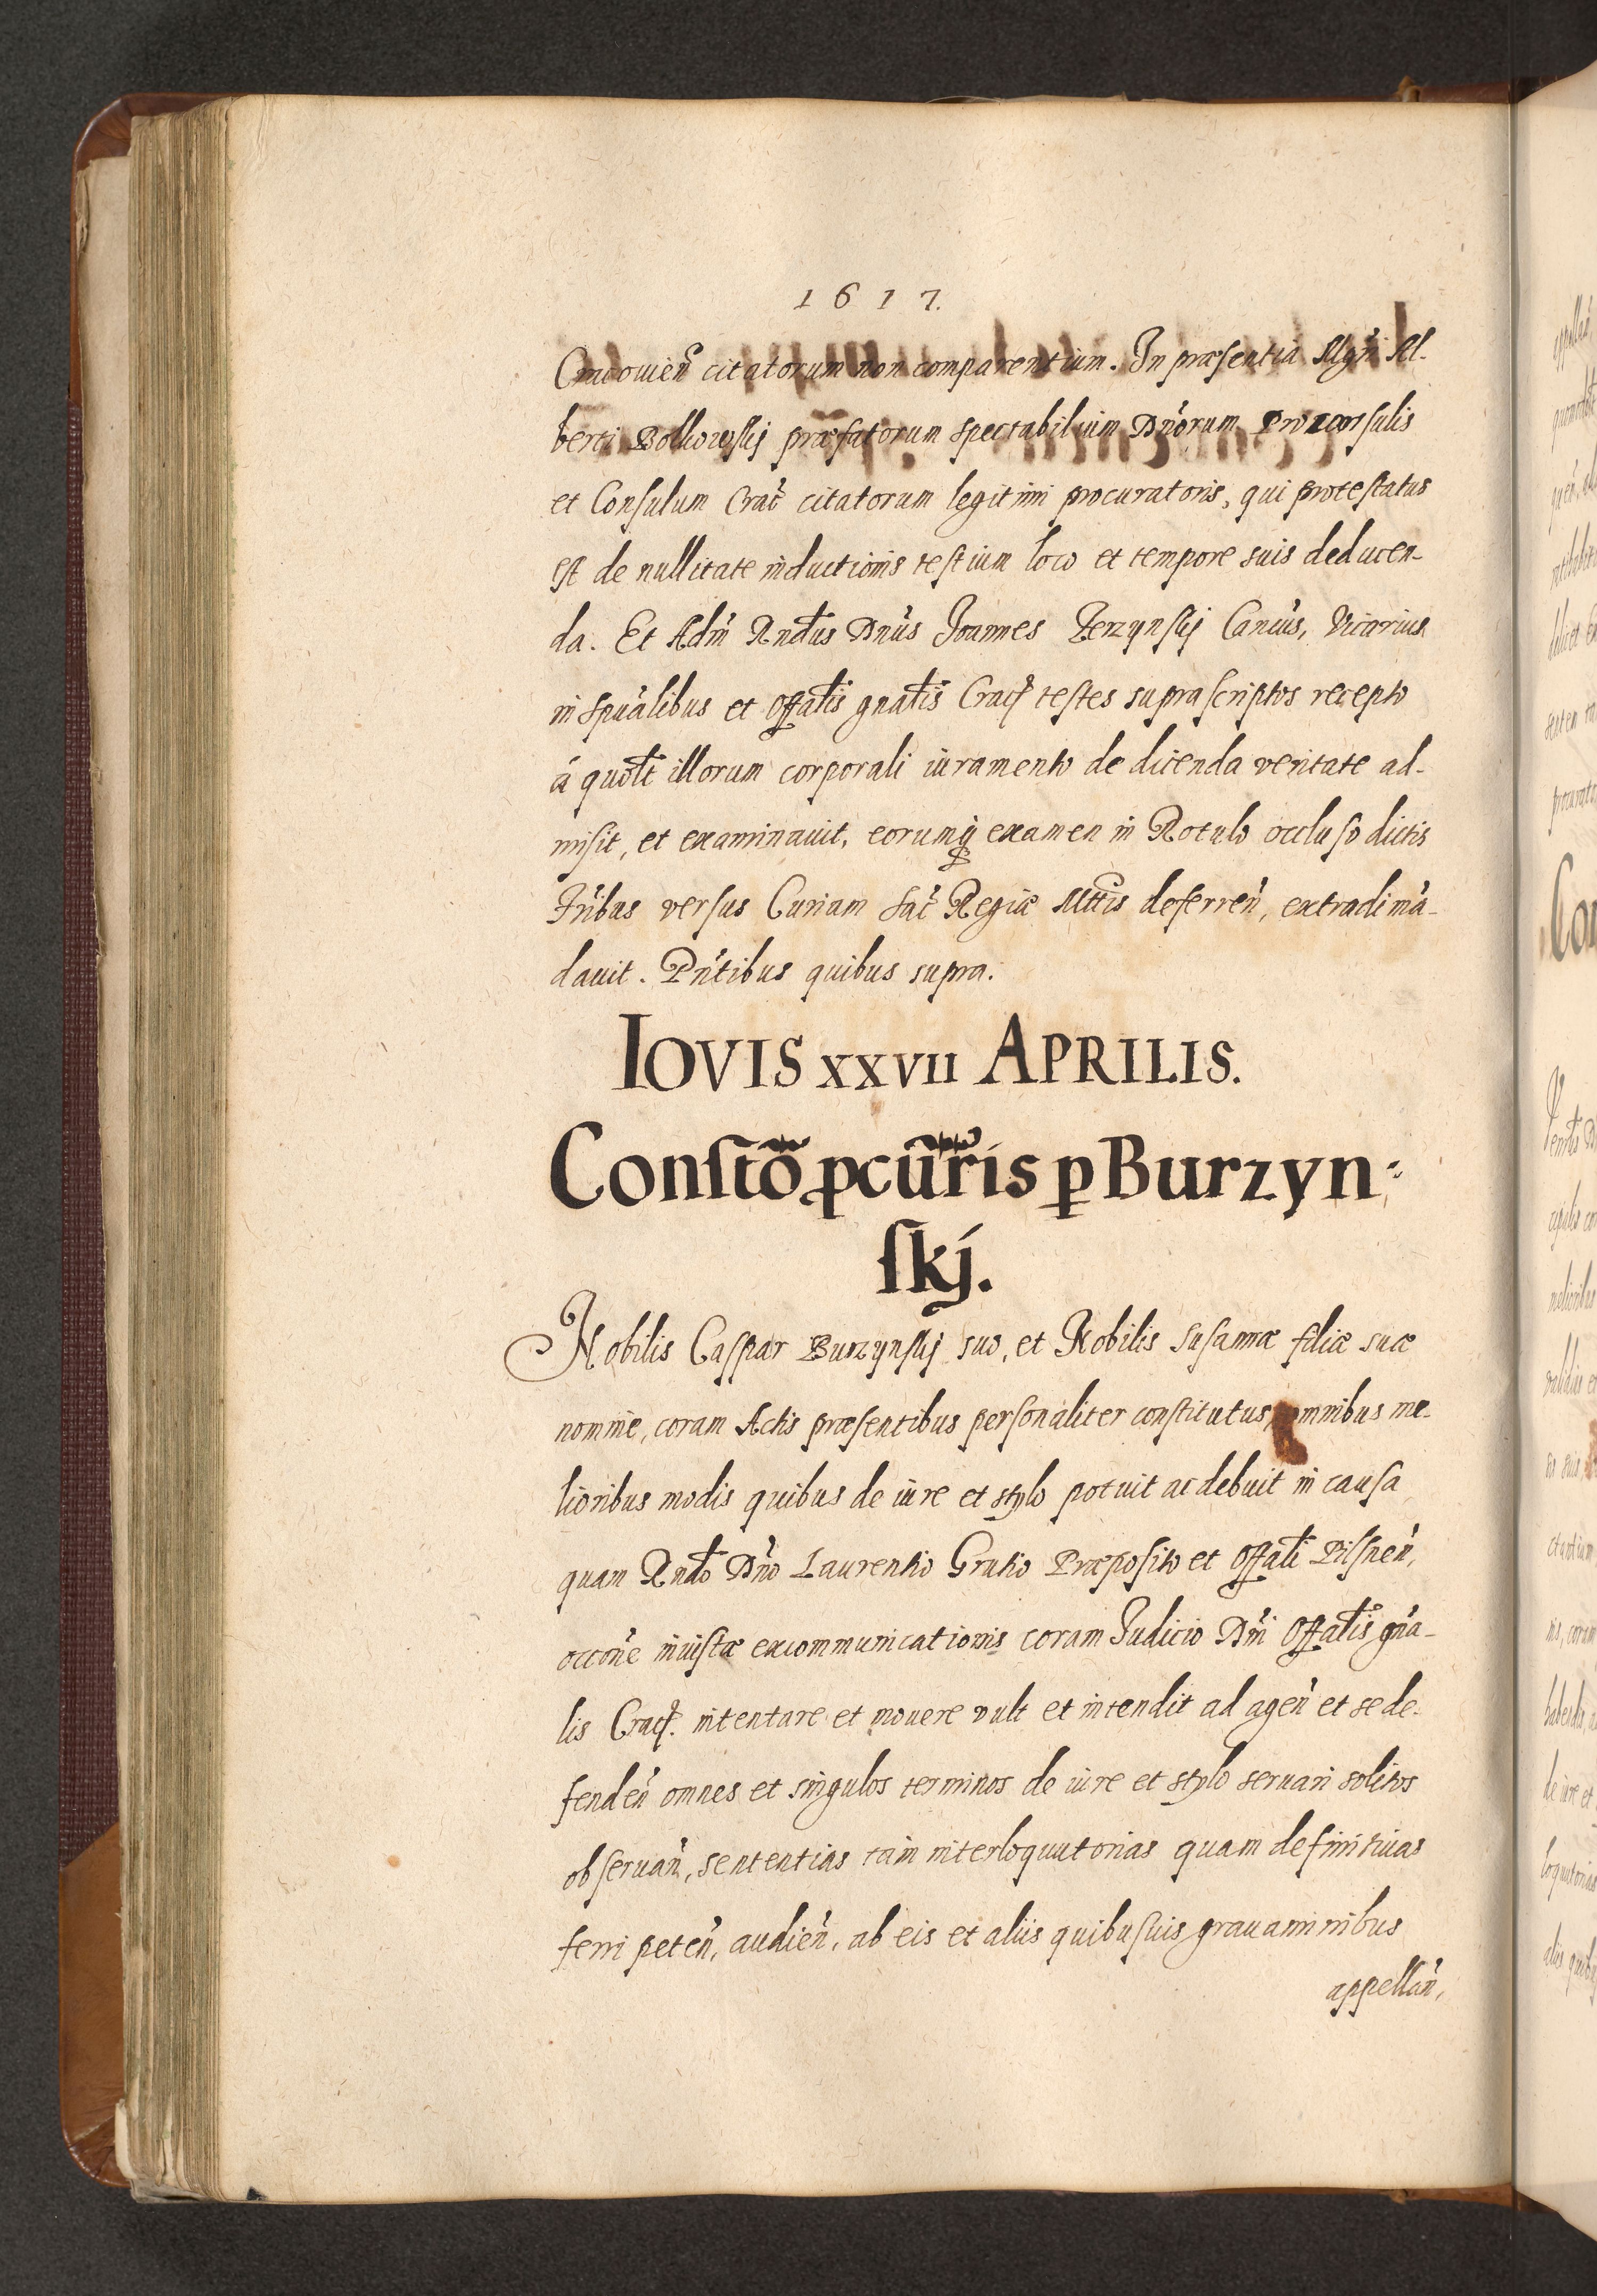 1617.
Cracouien̄ citatorum non comparentium. In præsentia Mgri Al-
berti Bolkowskij præfatorum Spectabilium Dn̄orum Proconsulis
et Consulum Crac̄ citatorum legitimi procuratoris, qui protestatus
est de nullitate inductionis testium loco et tempore suis deducen-
da. Et Adm̄ Rn̄dus Dn̄us Ioannes Canc̄us, Vicarius
in Spūalibus et Offātis gnātis Crac̄ testes suprascriptos recepto
á quolt illorum corporali iuramento de dicenda veritate ad-
misit, et examinauit, eorumq̨ examen in Rotulo occluso dictis
Frības versus Curiam Sac̄ Regiæ Mttis deferren̄, extradi mā-
dauit. Pn̄tibus quibus supra.
IOVIS XXVII APRILIS.
Conſtō pcūr̄is p Burzyn:
ſkj.
Nobilis Caspar Burzynskij suo, et Nobilis Susannæ filiæ suæ
nomine, coram Actis præsentibus personaliter constitutus, omnibus me-
lioribus modis quibus de iure et stylo potuit ac debuit in causa
quam Rn̄do Dn̄o Laurentio Grutio Præposito et Offāli Pilsnen̄,
occōne iniustæ excommunicationis coram Iudicio Dn̄i Offātis gn̄a-
lis Crac̄. intentare et mouere vult et intendit ad agen̄ et se de-
fenden̄ omnes et singulos terminos de iure et stylo seruari solitos
obseruan̄, sententias tam interloquutorias quam definitiuas
ferri peten̄, audien̄, ab eis et aliis quibusuis grauaminibus
appellan̄,